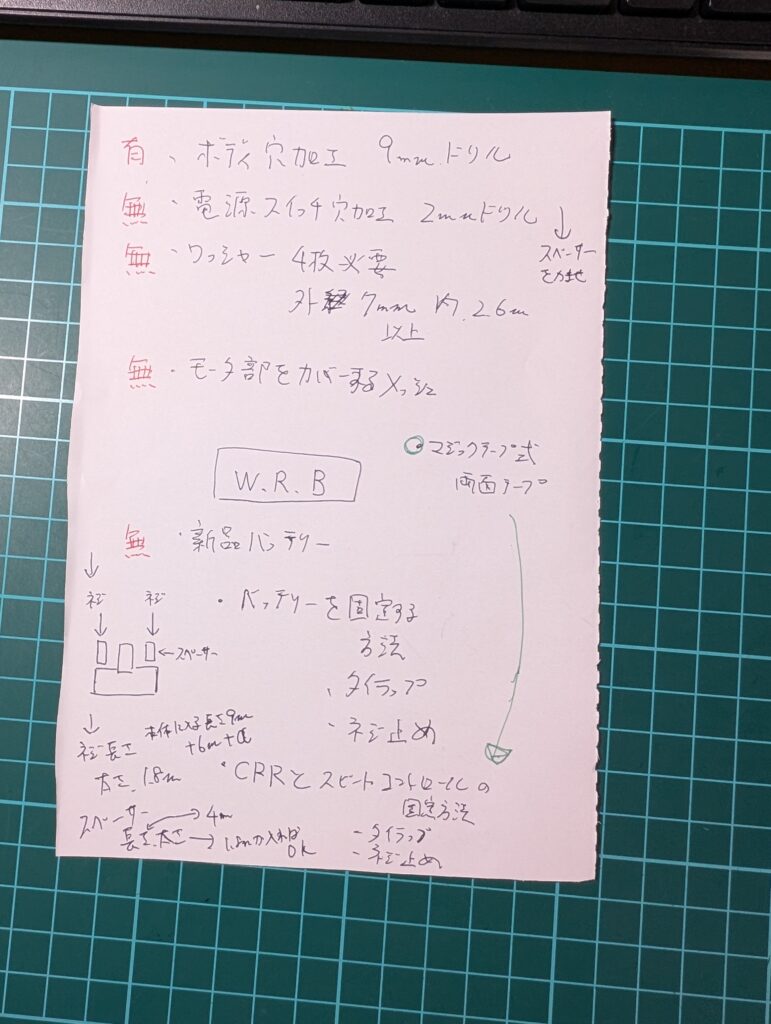 有、ボディ穴加工 9mmドリル
無・電源スイッチ穴加工 2mmドリル
↓
スペーサー
をかませ
無・ワッシャー 4枚必要
外 7mm 内.2.6m
以上
無・モータ部をカバーするメッシュ
マジックテープ式
両面テープ
W.R.B
無・新品バッテリー
↓
ネジ ネジ
↓ ↓
←スペーサー
・バッテリーを固定する
方法
、タイラップ
・ネジ止め
↓
ネジ長さ
本体に入る長さ9m
+6m+α
太さ.1.8m
・CRRとスピートコントロールの
固定方法
-タイラップ
-ネジ止め
スペーサー
長さ.太さ
→4m
→1.8mが入れば
OK